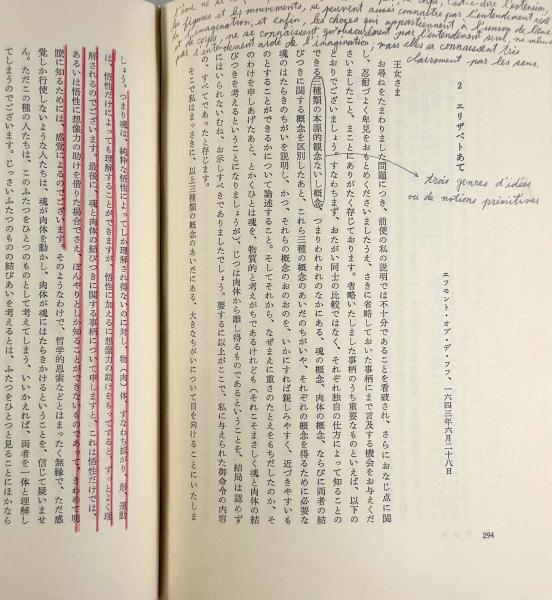 l'âme ne se
les figures et les mouvements, se peuvent aussi connaître par l'entendement aidé
de l'imagination; et enfin, les choses qui appartiennent à l'union de l'âme
et du corps, ne se connaissent qu'obscurément par l'entendement seul, ni même
par l'entendement aidé de l'imagination; mais elles se connaissent très
clairement par les sens.
trois genres d'idées
ou de notions primitives
2 エリザベトあて
エフモント・オプ・デ・フフ、一六四三年六月二十八日
王女さま
お尋ねをたまわりました問題につき、前便の私の説明では不十分であることを看破され、さらにおなじ点に関
し、忍耐づよく卑見をおもとめくださいましたうえ、さきに省略しておいた事柄にまで言及する機会をお与えくだ
さいましたこと、まことにありがたく存じております。省略いたしました事柄のうち重要なものといえば、以下の
とおりでございましょう。すなわちまず、おたがい同士の比較ではなく、それぞれ独自の仕方によって知ることの
できる三種類の本源的観念ないし概念、つまりわれわれのなかにある、魂の概念、肉体の概念、ならびに両者の結
びつきに関する概念を区別したあと、これら三種の概念のあいだのちがいや、それぞれの概念を得るために必要な
魂のはたらきのちがいを説明し、かつ、それらの概念のおのおのを、いかにすれば親しみやすく、近づきやすいも
のとすることができるかについて論述すること。そしてそれから、なぜまえに重さのたとえをもちだしたのか、そ
のわけを申しあげたあと、とかくひとは魂を、物質的と考えがちであるけれども(それこそまさしく魂と肉体の結
びつきを考えるということになりましょうが)、じつは肉体から離し得るものであるということを、結局は認めず
にはいられないむね、お示しすべきでありましたでしょう。要するに以上がここで、私に与えられた御命令の内容
の、すべてであったと存じます。
そこで私はまっさきに、以上三種類の概念のあいだにある、大きなちがいについて目を向けることにいたしま
294
しょう。つまり魂は、純粋な悟性によってしか理解され得ないのに対し、物(肉)体、すなわち拡がり、形、運動
は、悟性だけによっても理解することができますが、悟性に加えるに想像力の助けをもってすると、ずっとよく理
解されるのでございます。最後に、魂と肉体の結びつきに関する事柄について申しますと、これは悟性だけでは、
あるいは悟性に想像力の助けを借りた場合でさえ、ぼんやりとしか知ることができないものであって、きわめて明
瞭に知るためには、感覚によるのでございます。そのようなわけで、哲学的思索などとはまったく無縁で、ただ感
覚しか行使しないような人たちは、魂が肉体を動かし、肉体が魂にはたらきかけるということを、信じて疑いませ
ん。ただこの種の人たちは、このふたつをひとつのものとして考えてしまう、いいかえれば、両者を一体と理解し
てしまうのでございます。じっさいふたつのものの結びあいを考えるとは、ふたつをひとつと見ることにほかなら